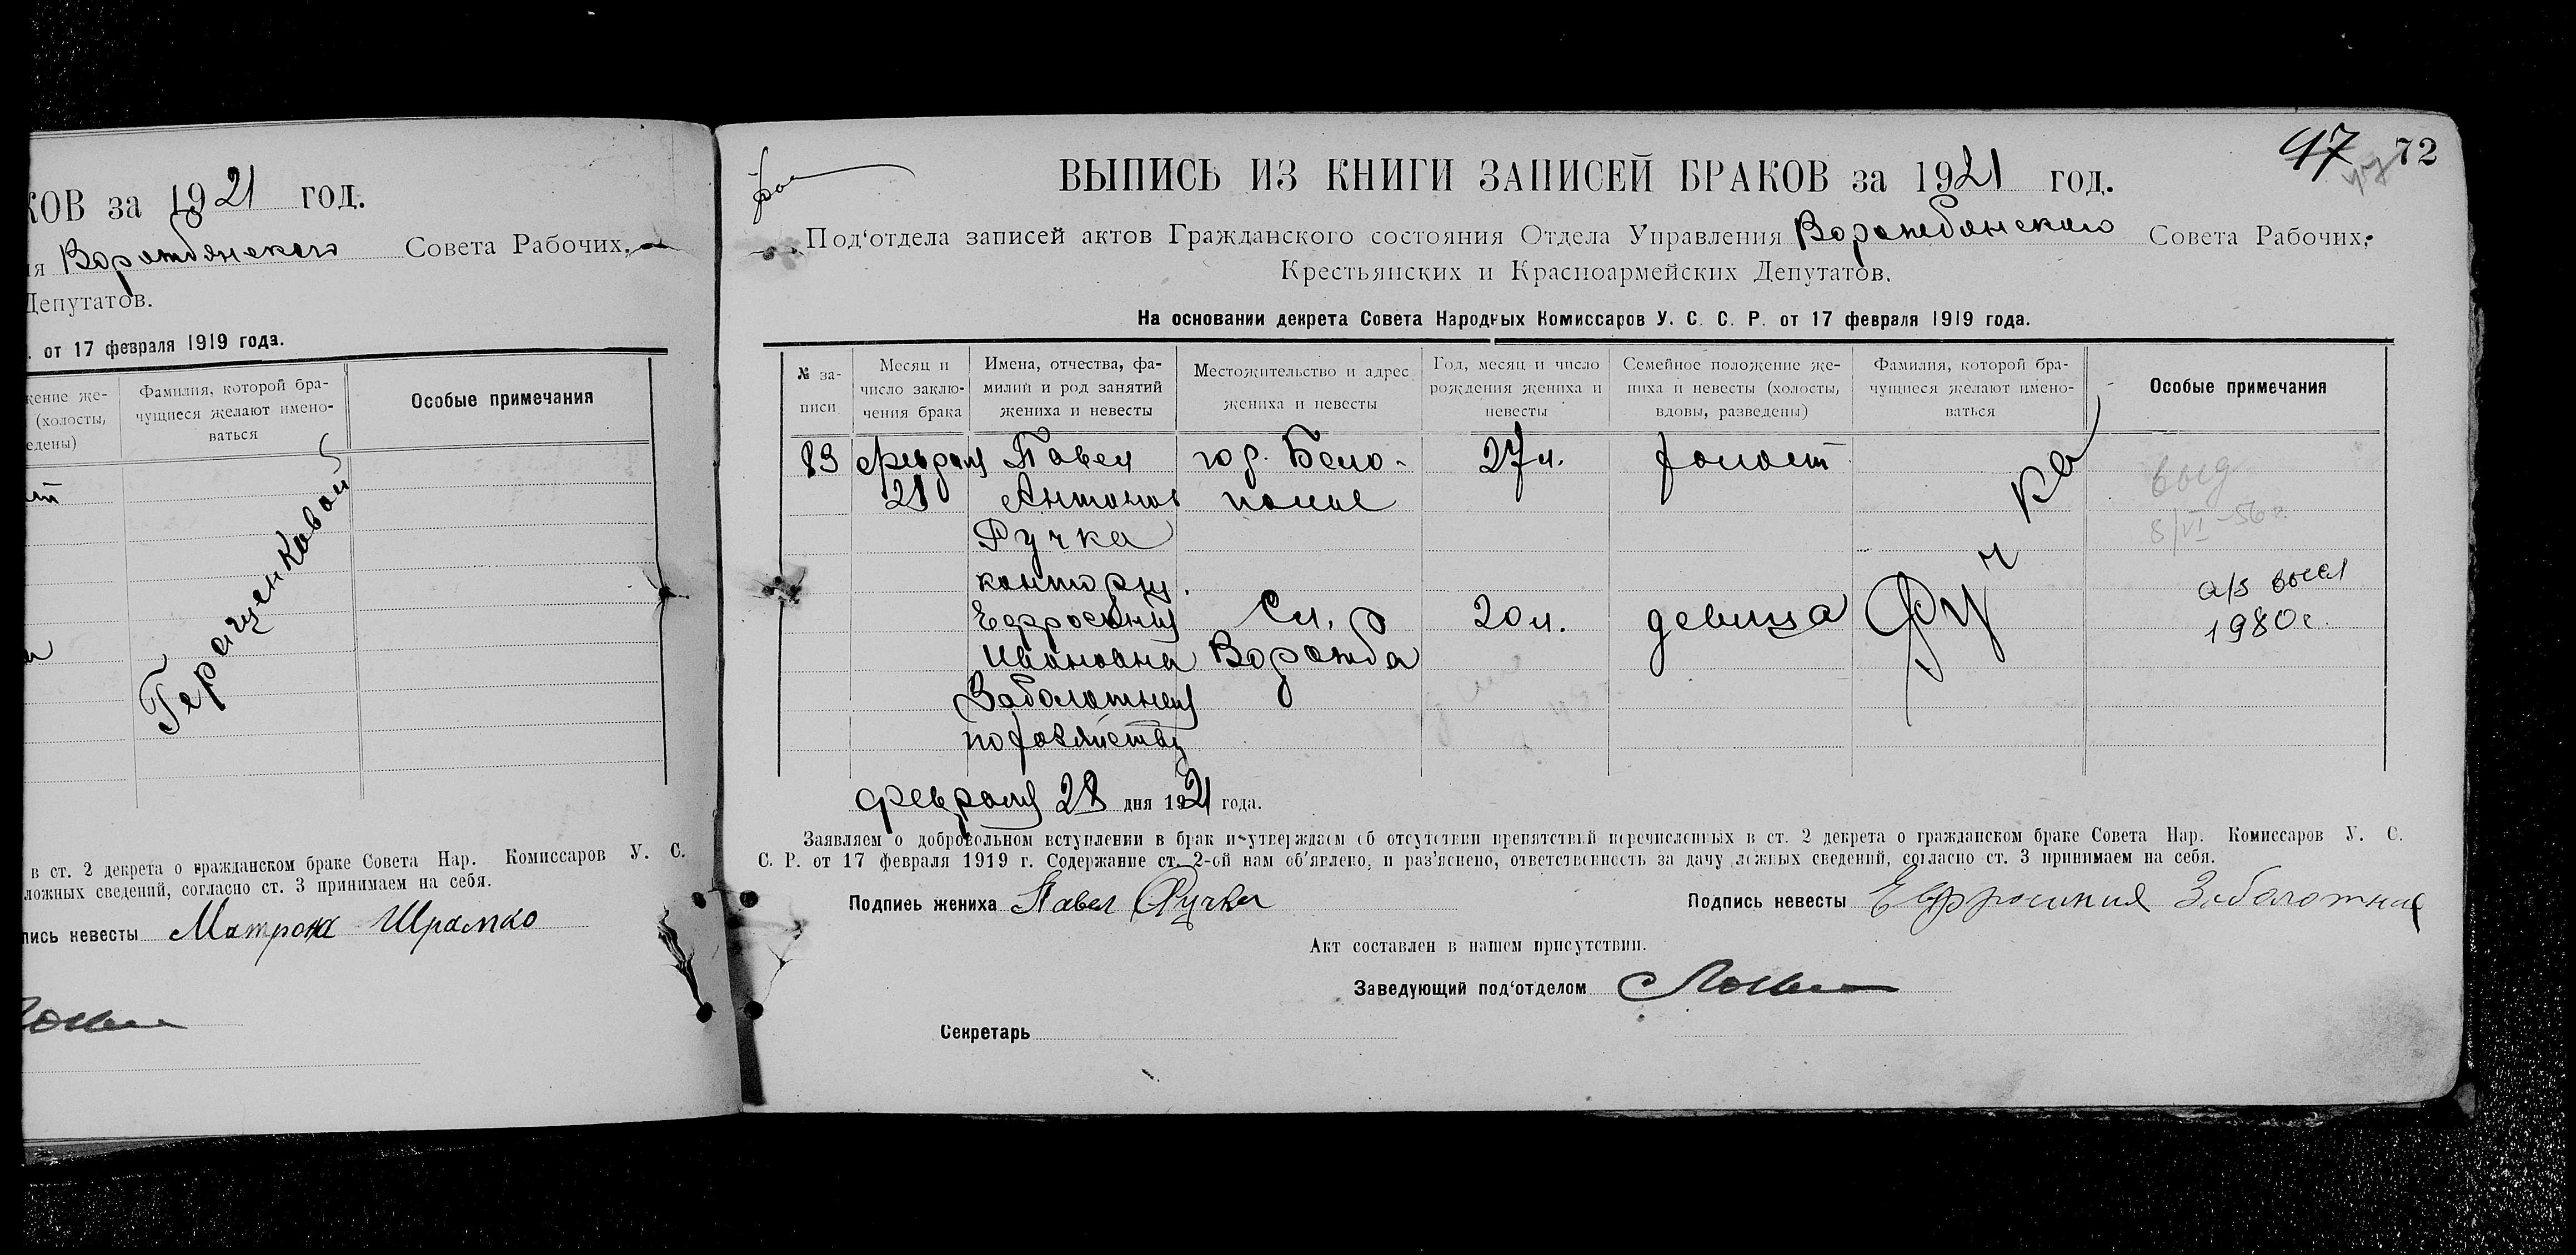 КОВ за 1921 год.
ия Ворожбянского Совета Рабочих,
Депутатов.
. от 17 февраля 1919 года.
жение же-
(холосты,
едены)
Фамилия, которой бра-
чущиеся желают имено-
ваться
Особые примечания
Геращенковой
в ст. 2 декрета о гражданском браке Совета Нар. Комиссаров У. С.
ложных сведений, согласно ст. 3 принимаем на себя.
пись невесты Матрона Шрамко
97 72
ВЫПИСЬ ИЗ КНИГИ ЗАПИСЕЙ БРАКОВ за 1921 год.
Под‘отдела записей актов Гражданского состояния Отдела Управления Ворожбянского Совета Рабочих,
Крестьянских и Красноармейских Депутатов.
На основании декрета Совета Народных Комиссаров У. С. С. Р. от 17 февраля 1919 года.
№ за-
писи
Месяц и
число заклю-
чения брака
Имена, отчества, фа-
милии и род занятий
жениха и невесты
Местожительство и адрес
жениха и невесты
Год, месяц и число
рождения жениха и
невесты
Семейное положение же-
ниха и невесты (холосты,
вдовы, разведены)
Фамилия, которой бра-
чущиеся желают имено-
ваться
Особые примечания
83 февраля Павел гор. Бело- 27 л. холост
28 Антонов полье
Ручка
конторщ.
Ефросиния Сл. 20 л. девица
Ивановна Ворожба
Заболотная
по хозяйству
Ручка
выд
8/VI-56 г.
а/з высл
1980г.
февраля 28 дня 1921 года.
Заявляем о добровольном вступлении в брак и утверждаем об отсутствии препятствий перечисленных в ст. 2 декрета о гражданском браке Совета Нар. Комиссаров У. С.
С. Р. от 17 февраля 1919 г. Содержание ст. 2-ой нам об’явлено, и раз’яснено, ответственность за дачу ложных сведений, согласно ст. 3 принимаем на себя.
Подпись жениха Павел Ручка Подпись невесты Ефросиния Заболотная
Акт составлен в нашем присутствии.
Заведующий под‘отделом
Секретарь